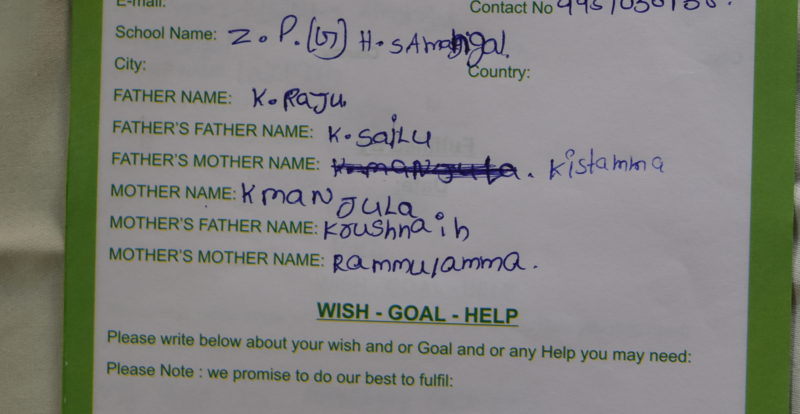 E-mail:
Contact No
School Name: Z.P.(G) H.S
City: Country:
FATHER NAME: K. RAJU
FATHER'S FATHER NAME: K. SAILU
FATHER'S MOTHER NAME: K. MANJULA. Kistamma
MOTHER NAME: K MANJULA.
MOTHER'S FATHER NAME: Koushnaih
MOTHER'S MOTHER NAME: Rammulamma.
WISH - GOAL - HELP
Please write below about your wish and or Goal and or any Help you may need:
Please Note : we promise to do our best to fulfil: